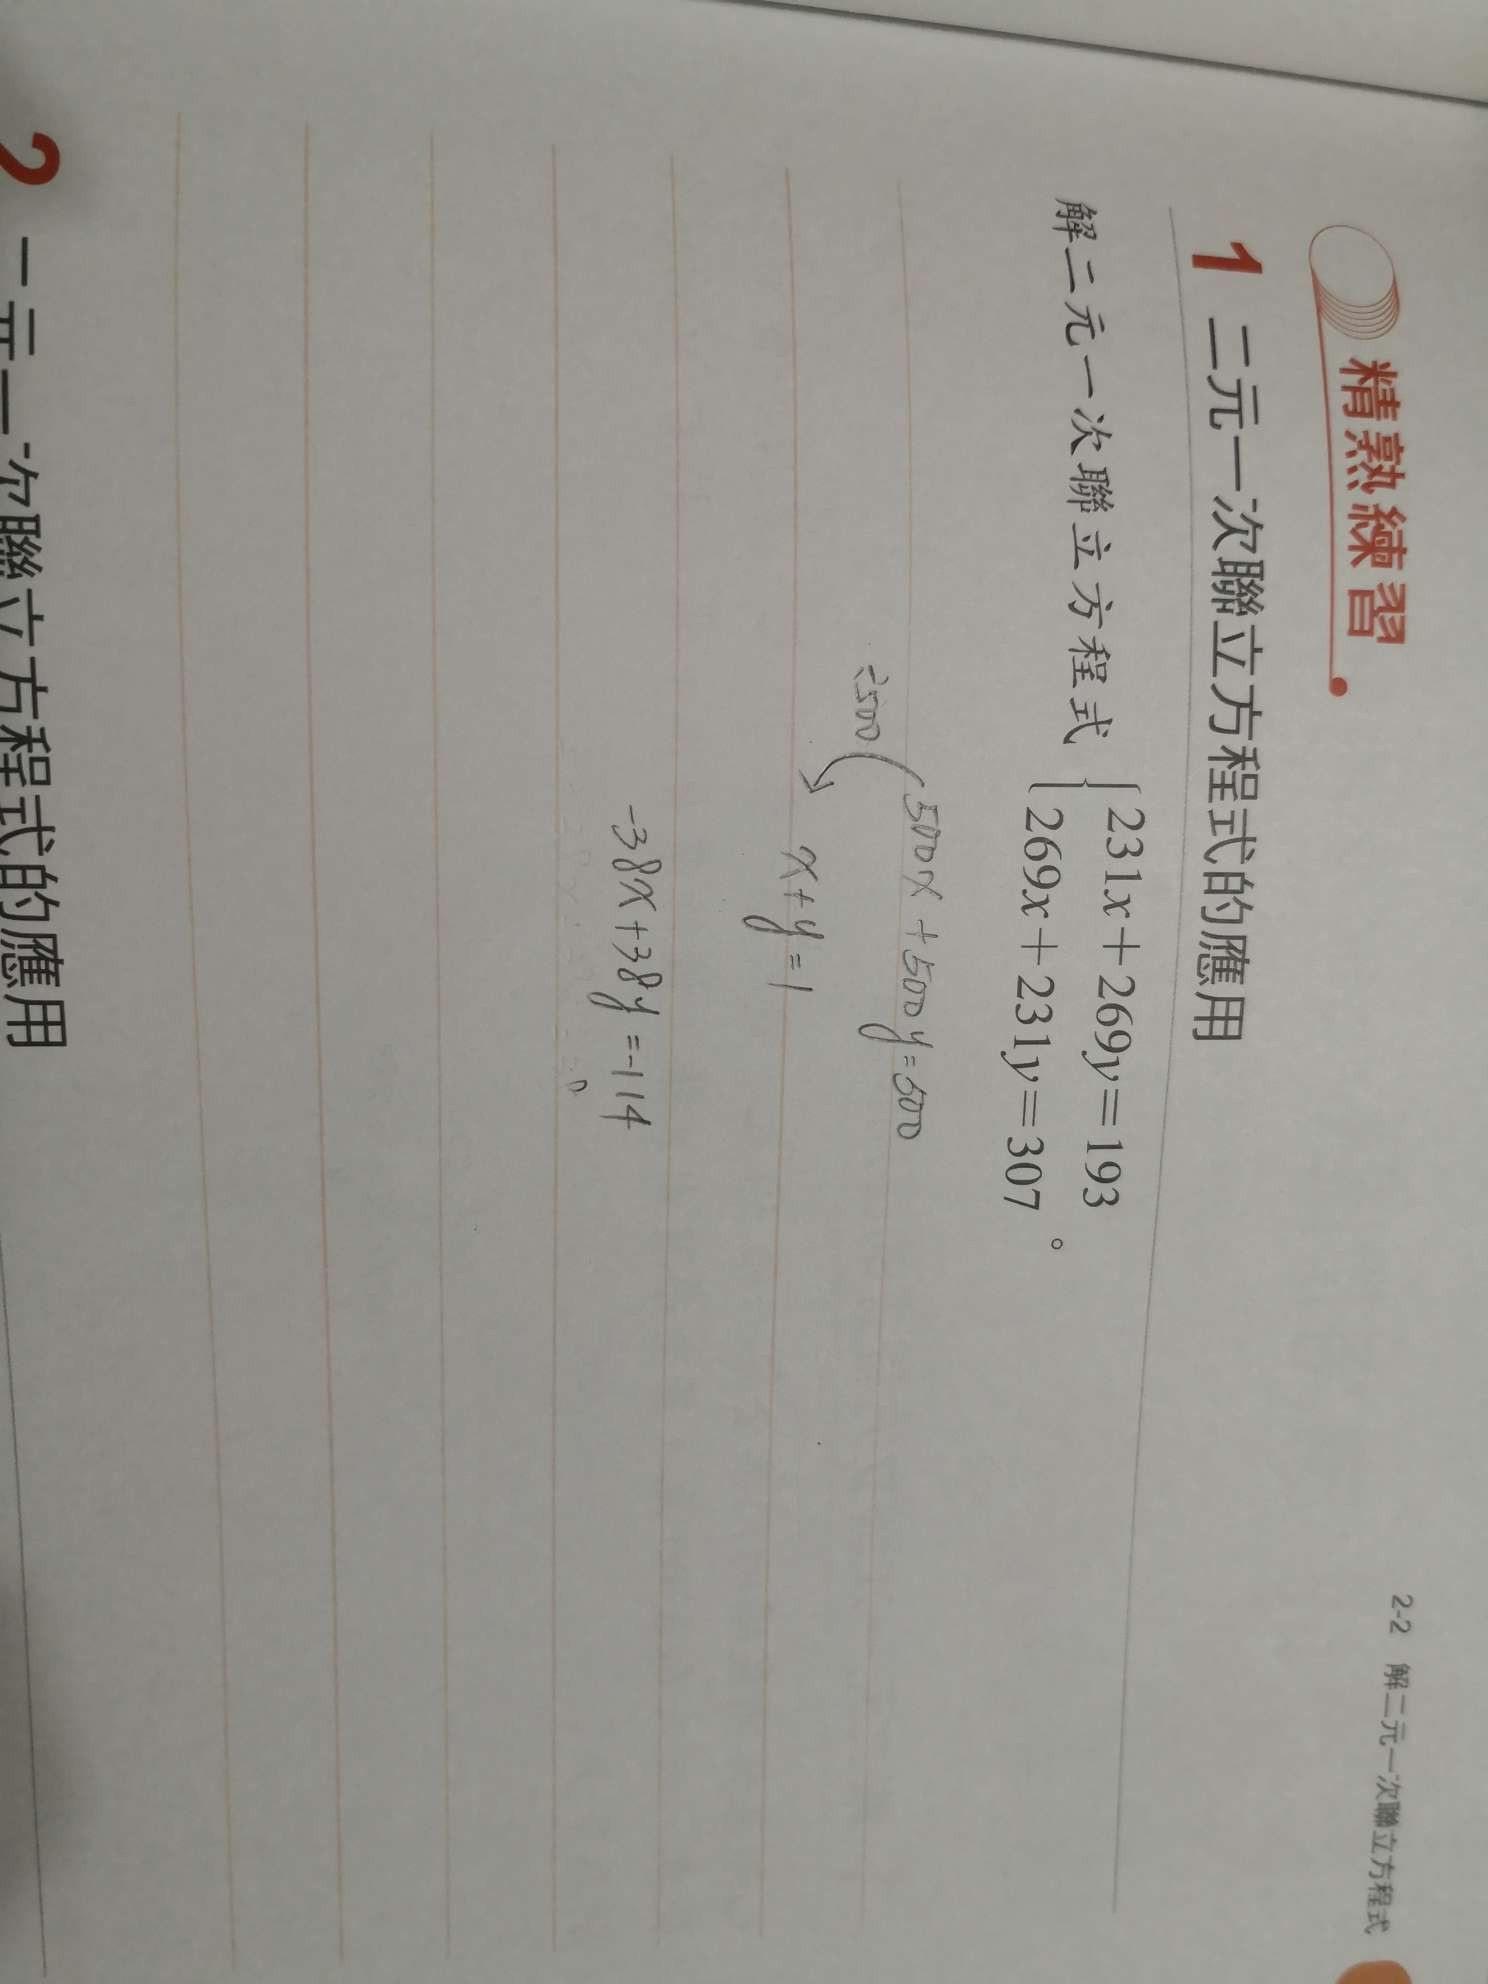 2-2 解二元一次聯立方程式
精熟練習
1 二元一次聯立方程式的應用
解二元一次聯立方程式 { 231x+269y=193
269x+231y=307 。
500x+500y=500
÷500
x+y=1
-38x+38y=-114
2 二元一次聯立方程式的應用